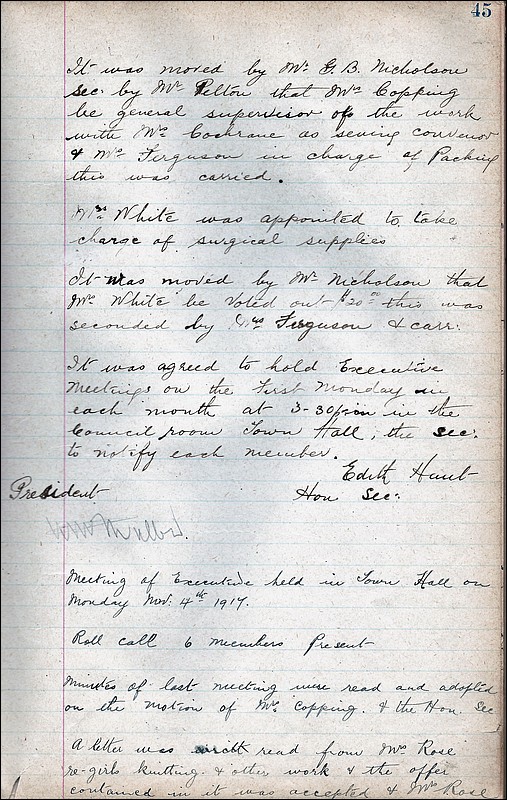 45
It was moved by Mr. G. B. Nicholson
sec. by Mr Pelton that Mrs Copping
be general supervisor of the work
with Mrs Cochrane as sewing convenor
& Mrs Ferguson in charge of Packing
this was carried.
Mrs White was appointed to take
charge of surgical supplies
It was moved by Mr Nicholson that
Mrs White be voted out $20.00 this was
seconded by Mrs Ferguson & carr:
It was agreed to hold Executive
Meetings on the First Monday in
each month at 3-30 p.m in the
Council room Town Hall, the sec.
to notify each member.
Edith Hunt
President Hon Sec:
Meeting of Executive held in Town Hall on
Monday Nov. 4th 1917.
Roll call 6 members Present
Minutes of last meeting were read and adopted
on the motion of Mrs Copping. & the Hon. Sec
A letter was read from Mrs Rose
re-girls knitting & other work & the offer
contained in it was accepted & Mrs Rose